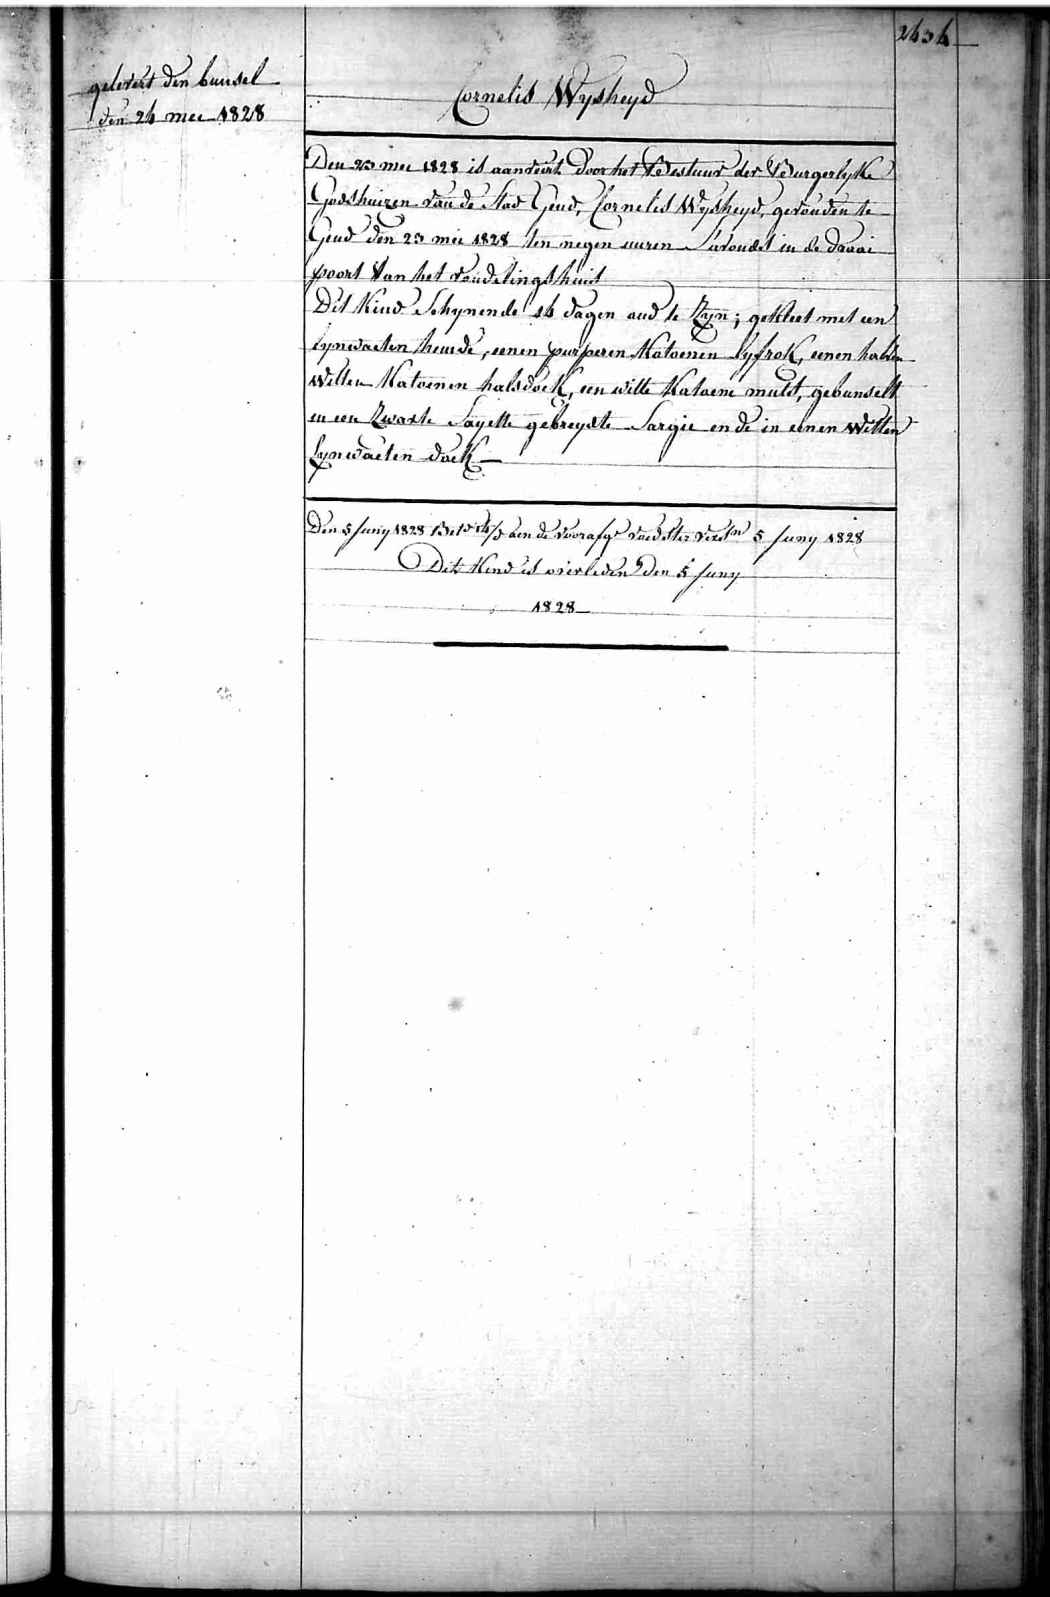 2434
gelevert den bunsel
den 24 mei 1828
Cornelis Wysheyd
Den 23 mei 1828 is aanveirt door het Bestuur der Burgerlyke
Godshuizen van de Stad Gend, Cornelis Wysheyd, gevonden te
Gend den 23 mei 1828 ten negen uuren S'avonds in de draai
poort Van het vondelingshuis
Dit Kind Schynende 14 dagen oud te Zyn; gekleet met een
lynwaeten hemde, eenen purperen Katoenen lyfrok, eenen halven
Witten Katoenen halsdoek, een witte Katoene muts, gebunselt
in een Zwarte Sayette gebreydte Sargie en de in eenen Witten
Lynwaeten doek
Den 5 Juny 1828 aen de voorafge voedster 5 Juny 1828
Dit Kind is overleden den 5 Juny
1828